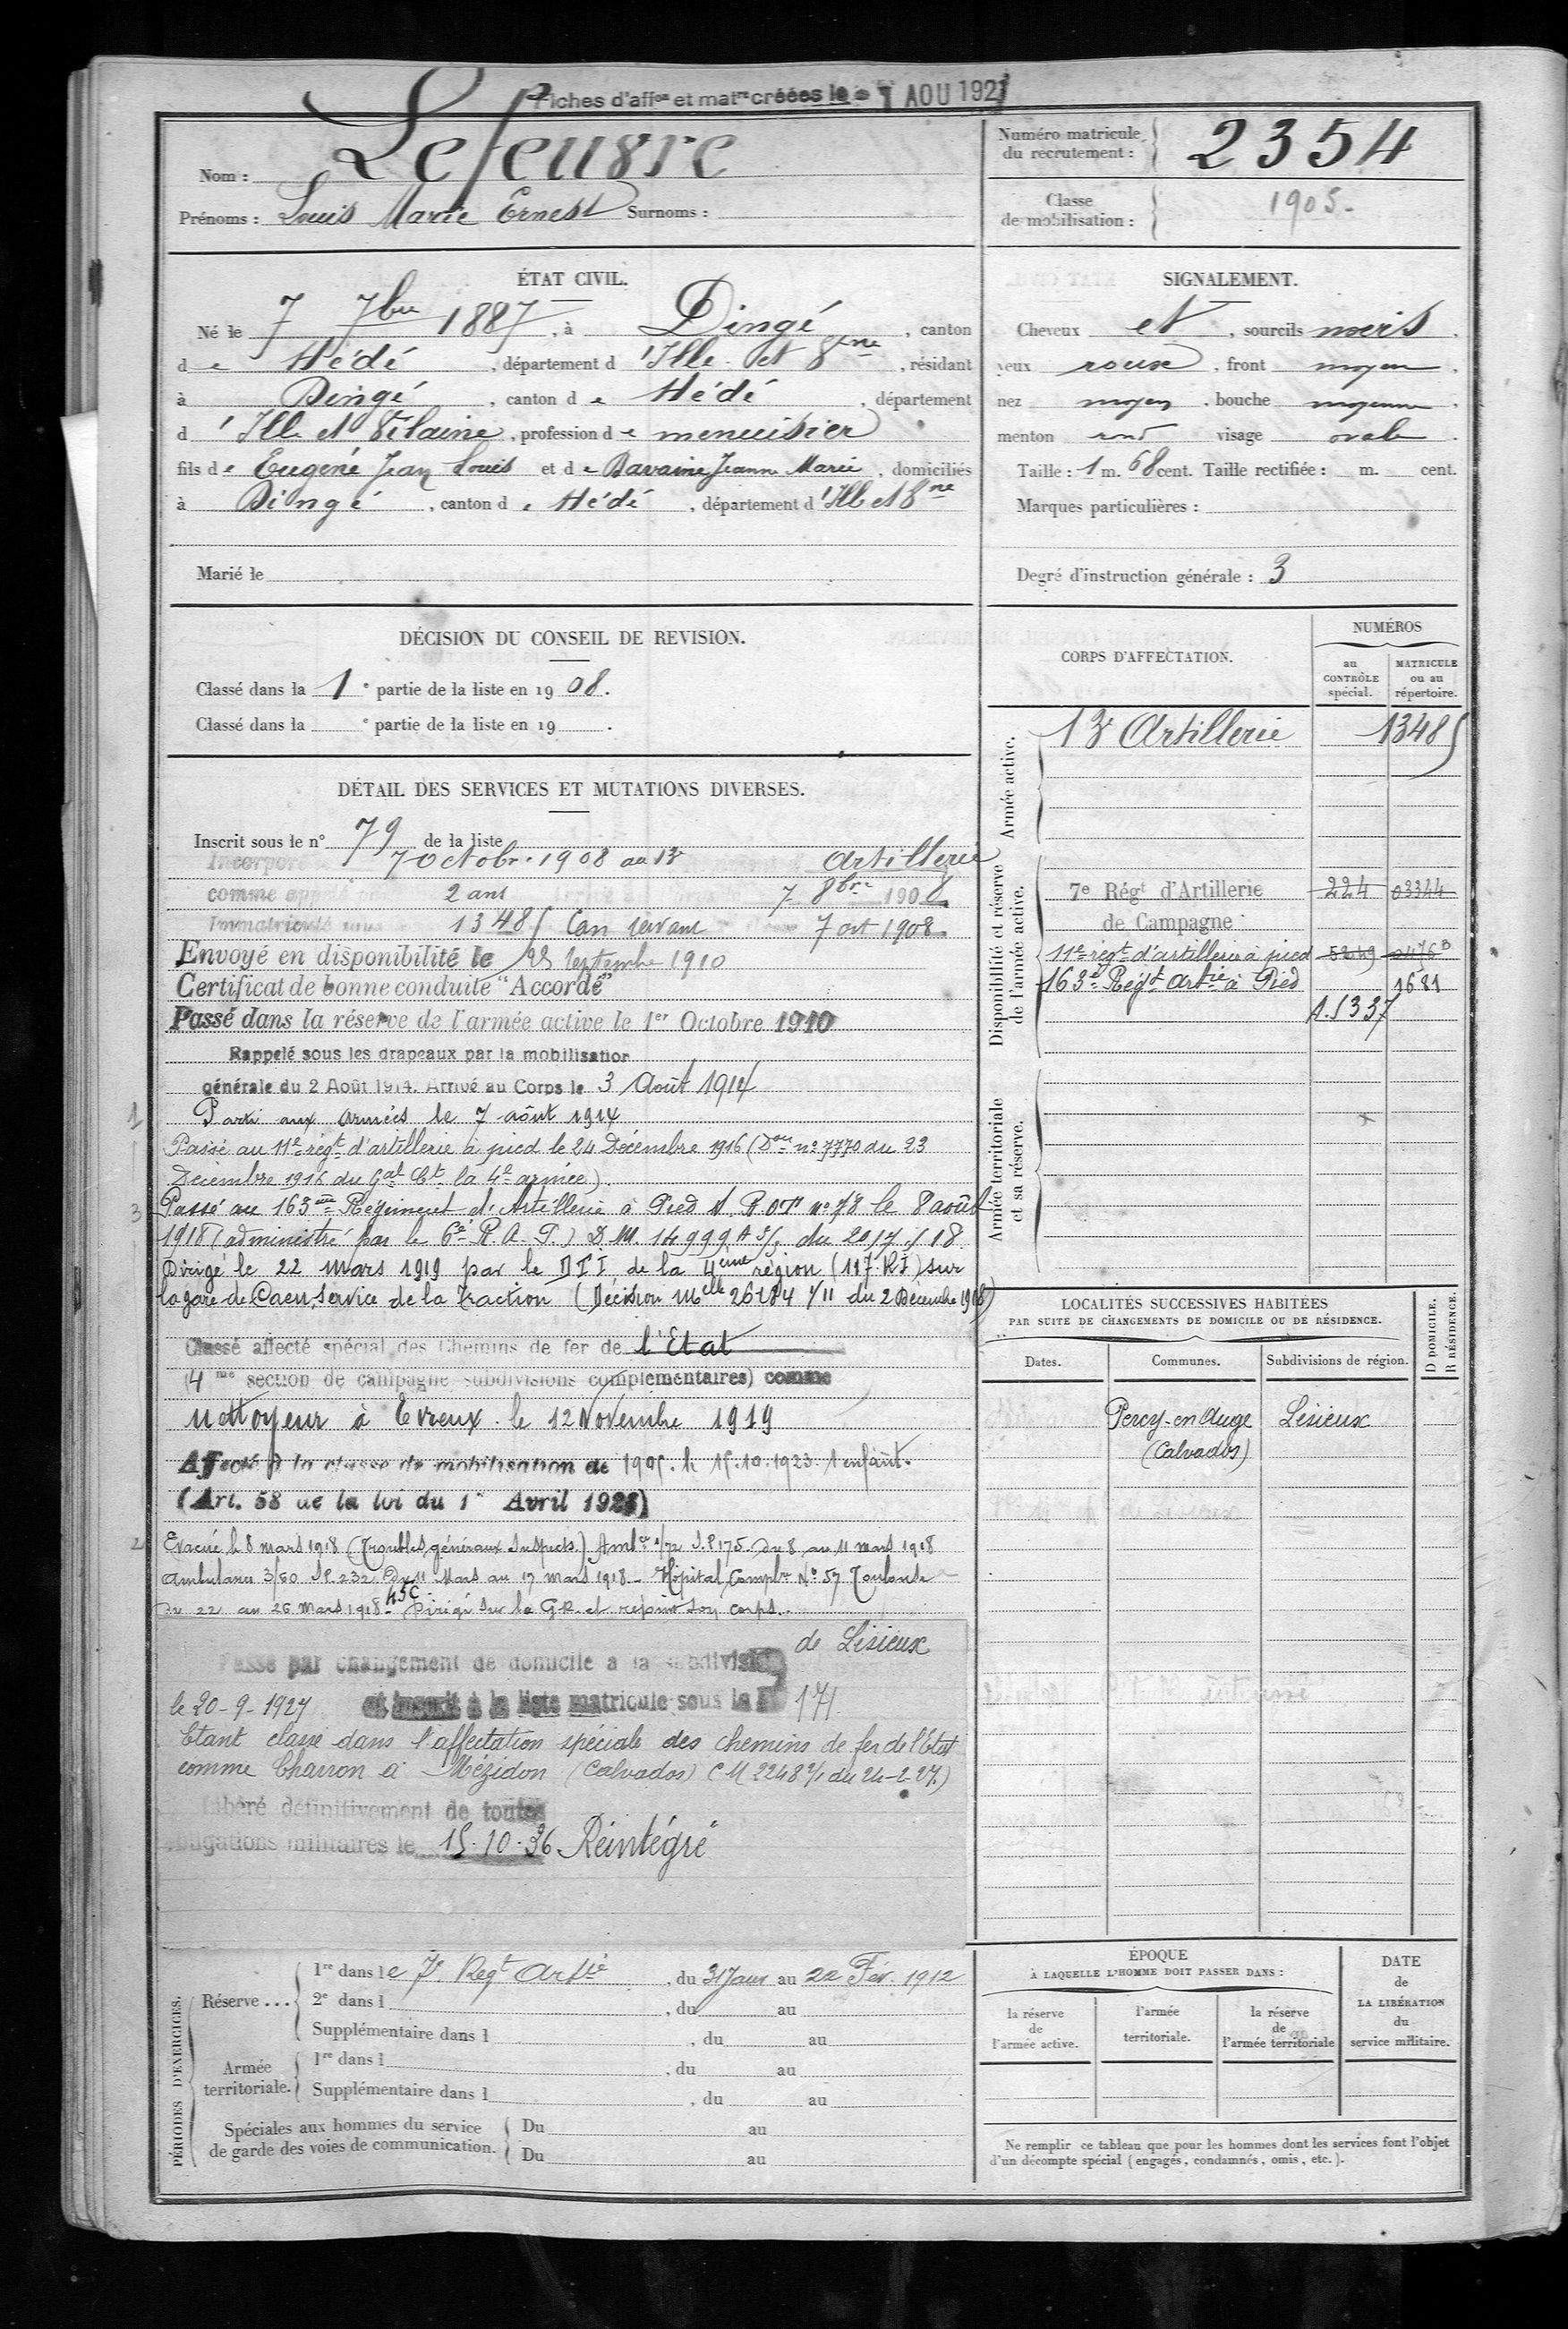 Fiches d'aff<sup>on</sup> et mat<sup>re</sup> créées le 1 AOU 1927
Nom : Lefeuvre
Prénoms : Louis Marie Ernest Surnoms :
Numéro matricule du recrutement : 2354
Classe de mobilisation : 1905
ÉTAT CIVIL.
Né le 7 7bre 1887, à Dingé, canton
de Hédé, département d'Ille et Vne, résidant
à Dingé, canton de Hédé, département
d'Ille et Vilaine, profession de menuisier
fils de Eugène Jean Louis et de Davaine Jeanne Marie, domiciliés
à Dingé, canton de Hédé, département d'Ille et Vne
Marié le
SIGNALEMENT.
Cheveux et, sourcils noirs.
yeux roux, front moyen.
nez moyen, bouche moyenne.
menton rond visage ovale.
Taille : 1 m. 68 cent. Taille rectifiée : m. cent.
Marques particulières :
Degré d'instruction générale : 3
DÉCISION DU CONSEIL DE REVISION.
Classé dans la 1e partie de la liste en 1908.
Classé dans la e partie de la liste en 19 .
DÉTAIL DES SERVICES ET MUTATIONS DIVERSES.
Inscrit sous le n° 79 de la liste
Incorporé 7 octobre 1908 au 13e Artillerie
comme appelé 2 ans 7 8bre 1908
Immatriculé sous 13485 Can servant 7 oct 1908
Envoyé en disponibilité le 25 Septembre 1910
Certificat de bonne conduite "Accordé"
Passé dans la réserve de l'armée active le 1er Octobre 1910
Rappelé sous les drapeaux par la mobilisation
générale du 2 Août 1914. Arrivé au Corps le 3 Août 1914
1 Parti aux armées le 7 août 1914
Passé au 11e régt d'artillerie à pied le 24 Décembre 1916 (Don n° 7770 du 23
Décembre 1916 du Gal Ct la 4e armée).
3 Passé au 163ème Régiment d'Artillerie à Pied n° 78 le 8 août
1918 (administré par le 6e R.A.P.) D.M. 14999 du 20/7/18
Dirigé le 22 mars 1919 par le DTI de la 4ème région (117 RI) sur
la gare de Caen, service de la Traction (Décision Mlle 26184 1/11 du 2 Décembre 1918)
Classé affecté spécial des Chemins de fer de l'Etat
(4me section de campagne subdivisions complémentaires) comme
nettoyeur à Evreux le 12 Novembre 1919
Affecté à la classe de mobilisation de 1905 le 15.10.1923 1 enfant.
(Art. 58 de la loi du 1er Avril 1923)
2 Evacué le 8 mars 1918 (Troubles généraux suspects) Ambce 1/72 S.P. 175 du 8 au 11 mars 1918
Ambulance 3/60 S.P. 232 du 11 Mars au 17 mars 1918 - Hôpital Complre N° 57 Toulouse
du 22 au 26 Mars 1918 Dirigé sur la G.R. et rejoint son corps.
Passé par changement de domicile à la subdivision de Lisieux
le 20-9-1927 et inscrit à la liste matricule sous le n° 171
Etant classé dans l'affectation spéciale des chemins de fer de l'Etat
comme Charron à Mézidon (Calvados) (M 2248 2/1 du 24-2-27.)
Libéré définitivement de toutes
obligations militaires le 15.10.36 Réintégré
CORPS D'AFFECTATION.
NUMÉROS
au CONTRÔLE spécial.
MATRICULE ou au répertoire.
Armée active.
13e Artillerie 13485
Disponibilité et réserve de l'armée active.
7e Régt d'Artillerie 224 03344
de Campagne
11e régt d'artillerie à pied
163e Régt Artie à Pied 1681
A.S 337
Armée territoriale et sa réserve.
LOCALITÉS SUCCESSIVES HABITÉES
PAR SUITE DE CHANGEMENTS DE DOMICILE OU DE RÉSIDENCE.
D DOMICILE.
R RÉSIDENCE.
Dates. Communes. Subdivisions de région.
Percy-en-Auge Lisieux
(Calvados)
PÉRIODES D'EXERCICES.
Réserve ... 1re dans le 7e Regt Artie, du 31 Janv au 22 Fév. 1912
2e dans l , du au
Supplémentaire dans l , du au
Armée territoriale. 1re dans l , du au
Supplémentaire dans l , du au
Spéciales aux hommes du service de garde des voies de communication. Du au
Du au
ÉPOQUE
À LAQUELLE L'HOMME DOIT PASSER DANS :
la réserve de l'armée active.
l'armée territoriale.
la réserve de l'armée territoriale
DATE de LA LIBÉRATION du service militaire.
Ne remplir ce tableau que pour les hommes dont les services font l'objet
d'un décompte spécial (engagés, condamnés, omis, etc.).